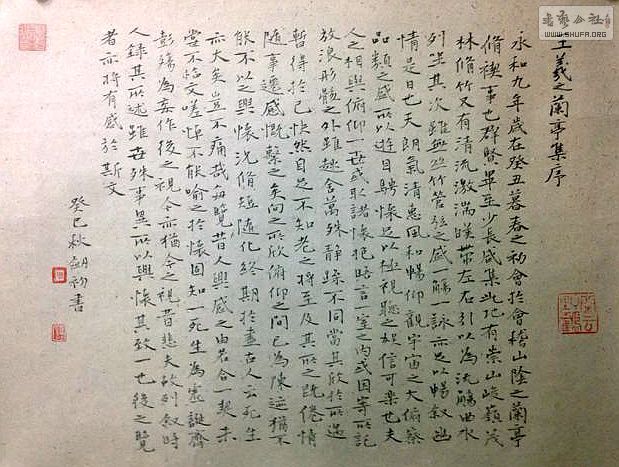 王羲之蘭亭集序
永和九年歲在癸丑暮春之初會於會稽山陰之蘭亭
脩禊事也群賢畢至少長咸集此地有崇山峻嶺茂
林脩竹又有清流激湍暎帶左右引以為流觴曲水
列坐其次雖無絲竹管弦之盛一觴一詠亦足以暢敘幽
情是日也天朗氣清惠風和暢仰觀宇宙之大俯察
品類之盛所以遊目騁懷足以極視聽之娛信可樂也夫
人之相與俯仰一世或取諸懷抱晤言一室之內或因寄所託
放浪形骸之外雖趣舍萬殊靜躁不同當其欣於所遇
暫得於己快然自足不知老之將至及其所之既倦情
隨事遷感慨繫之矣向之所欣俯仰之間已為陳迹猶不
能不以之興懷況脩短隨化終期於盡古人云死生
亦大矣豈不痛哉每覽昔人興感之由若合一契未
嘗不臨文嗟悼不能喻之於懷固知一死生為虛誕齊
彭殤為妄作後之視今亦猶今之視昔悲夫故列敘時
人錄其所述雖世殊事異所以興懷其致一也後之覽
者亦將有感於斯文
癸巳秋初書
WWW.SHUFA.ORG